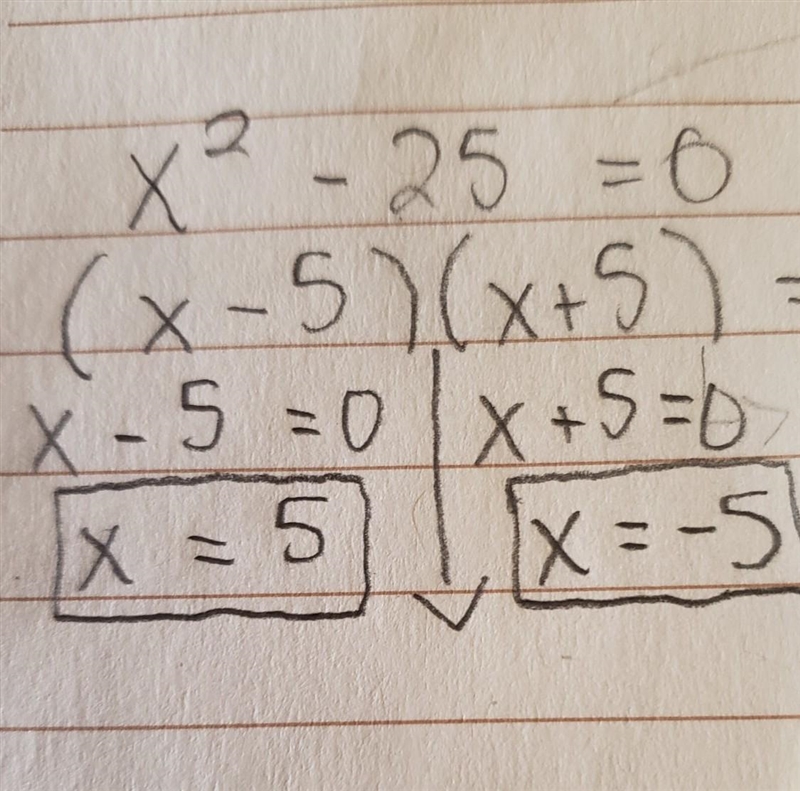 x² - 25 = 0
(x - 5)(x + 5) =
x - 5 = 0
x + 5 = 0
x = 5
x = -5